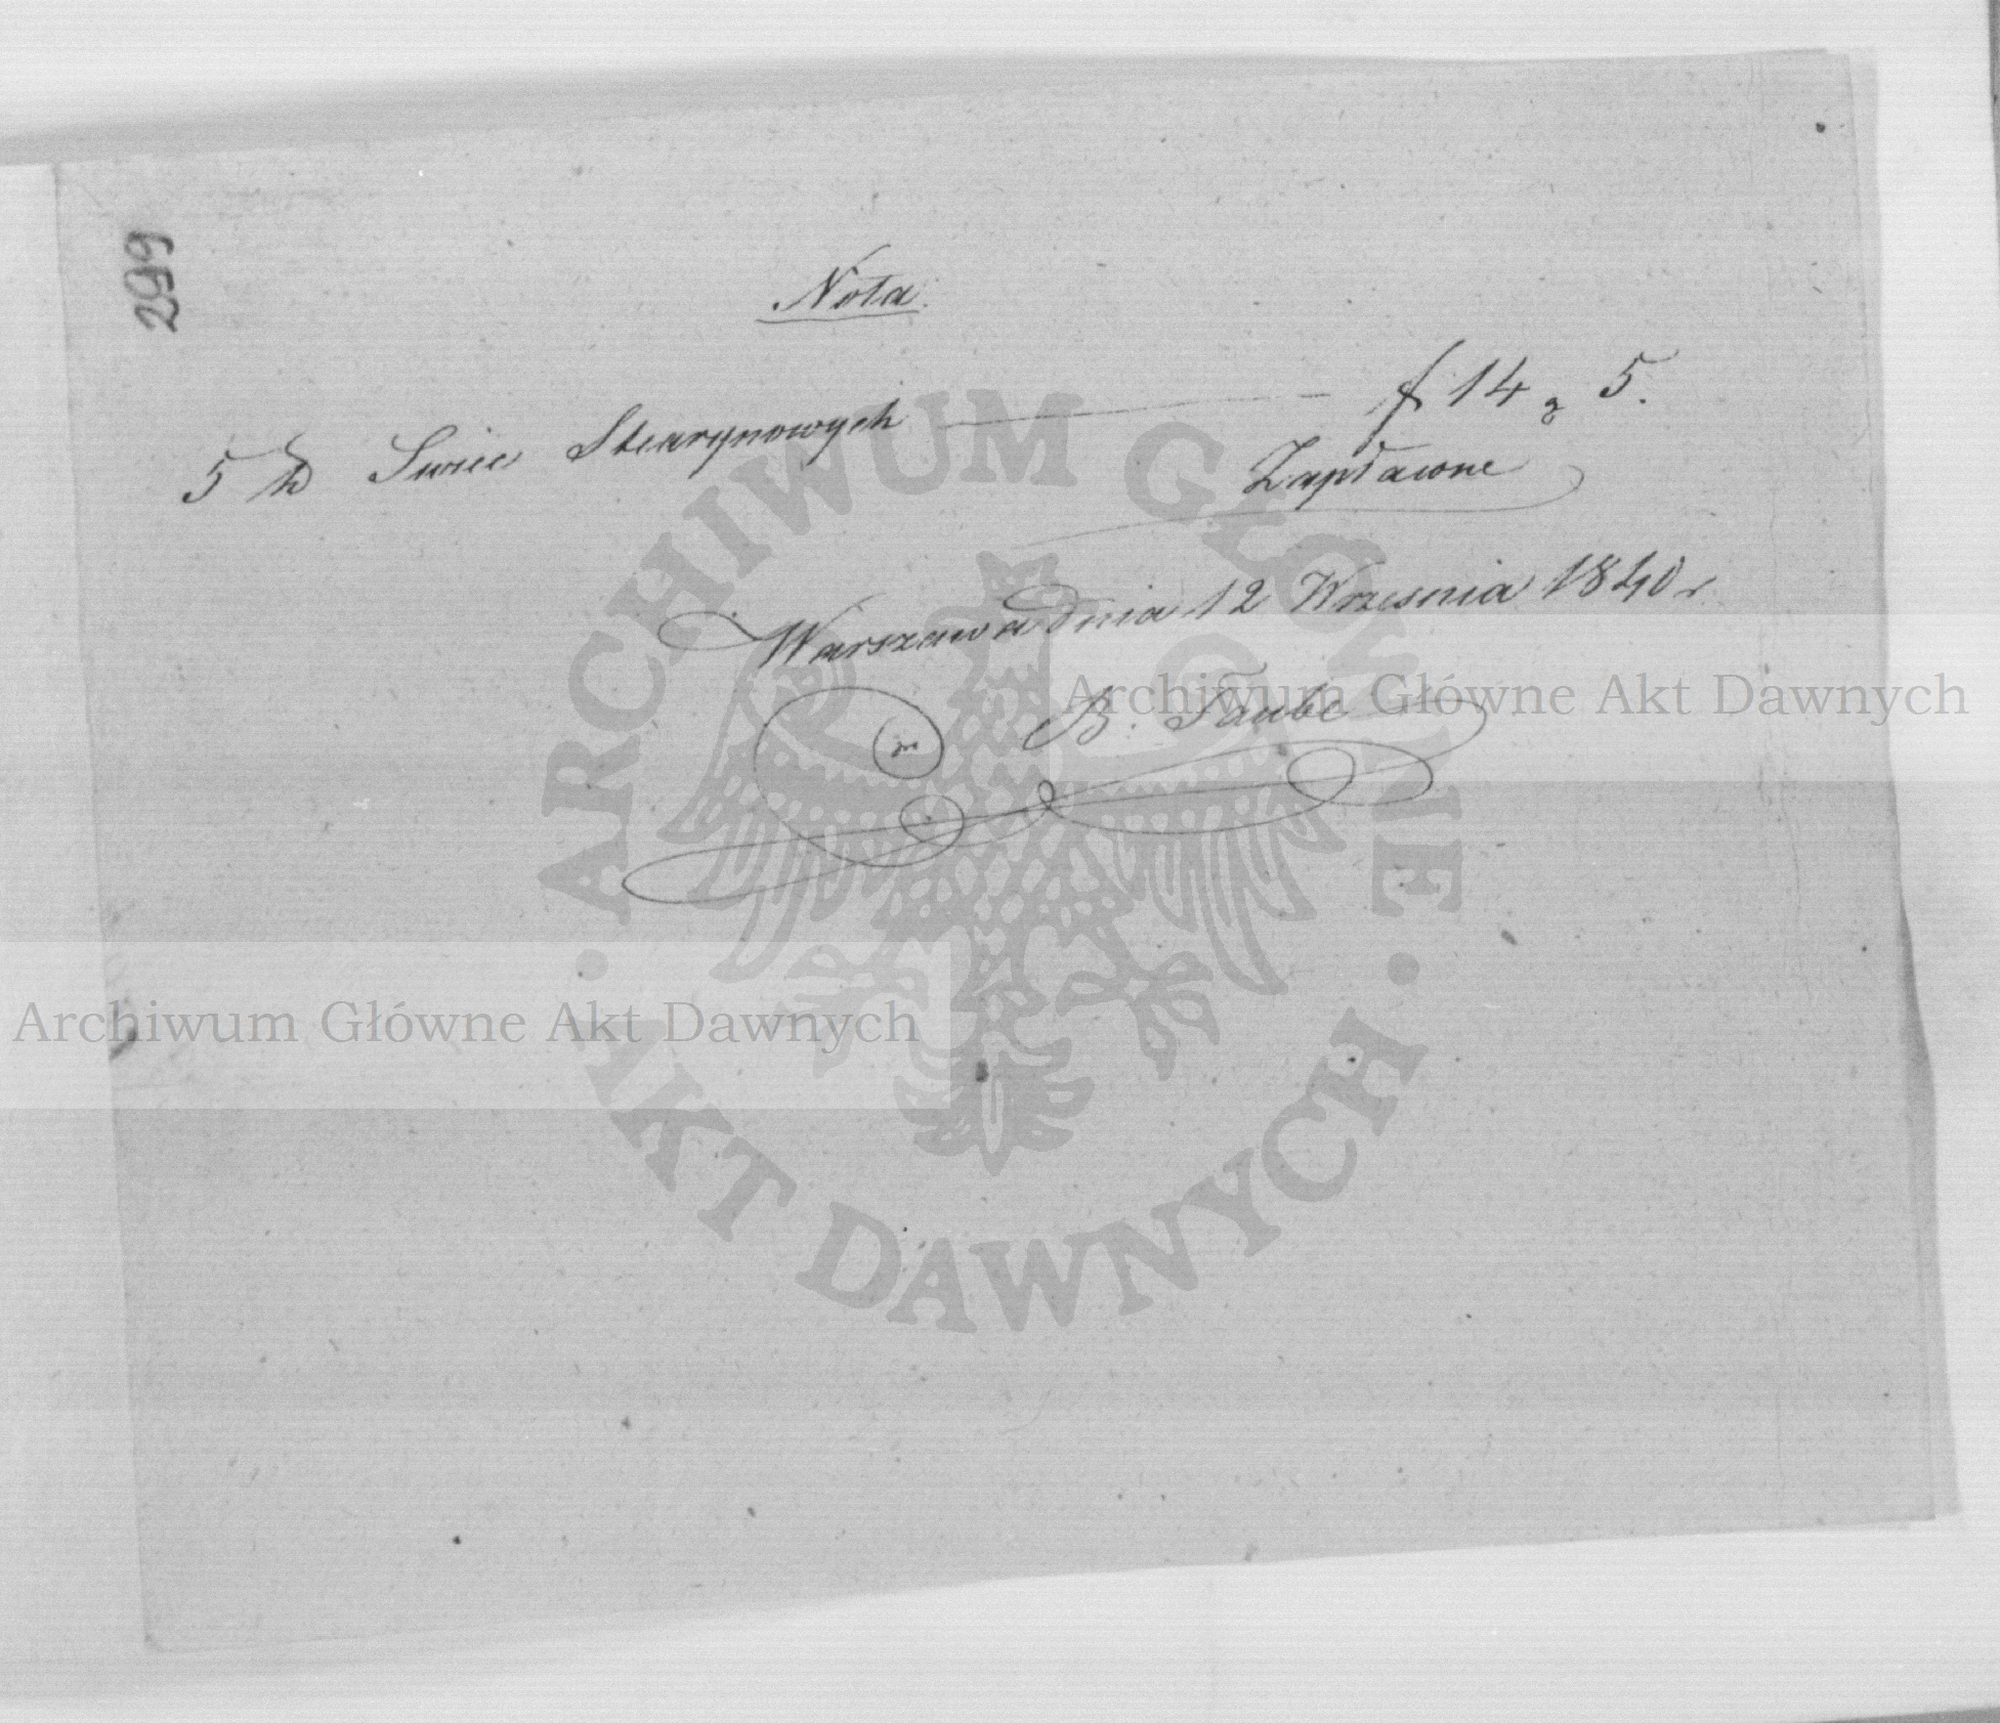 299
Nota.
5 ℔ Swiec Stearynowych — f 14 g 5.
Zapłacone
Warszawa dnia 12 Wrzesnia 1840 r
B. Taube
ARCHIWUM GŁÓWNE
AKT DAWNYCH
Archiwum Główne Akt Dawnych
Archiwum Główne Akt Dawnych